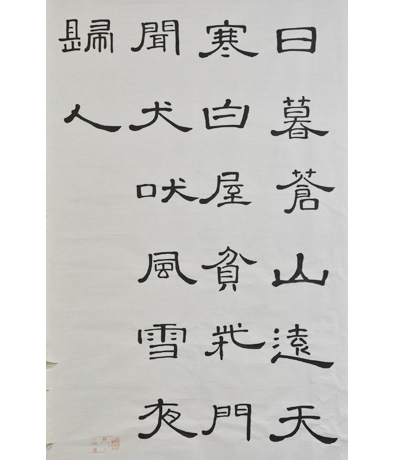 日暮蒼山遠天
寒白屋貧柴門
聞犬吠風雪夜
歸人